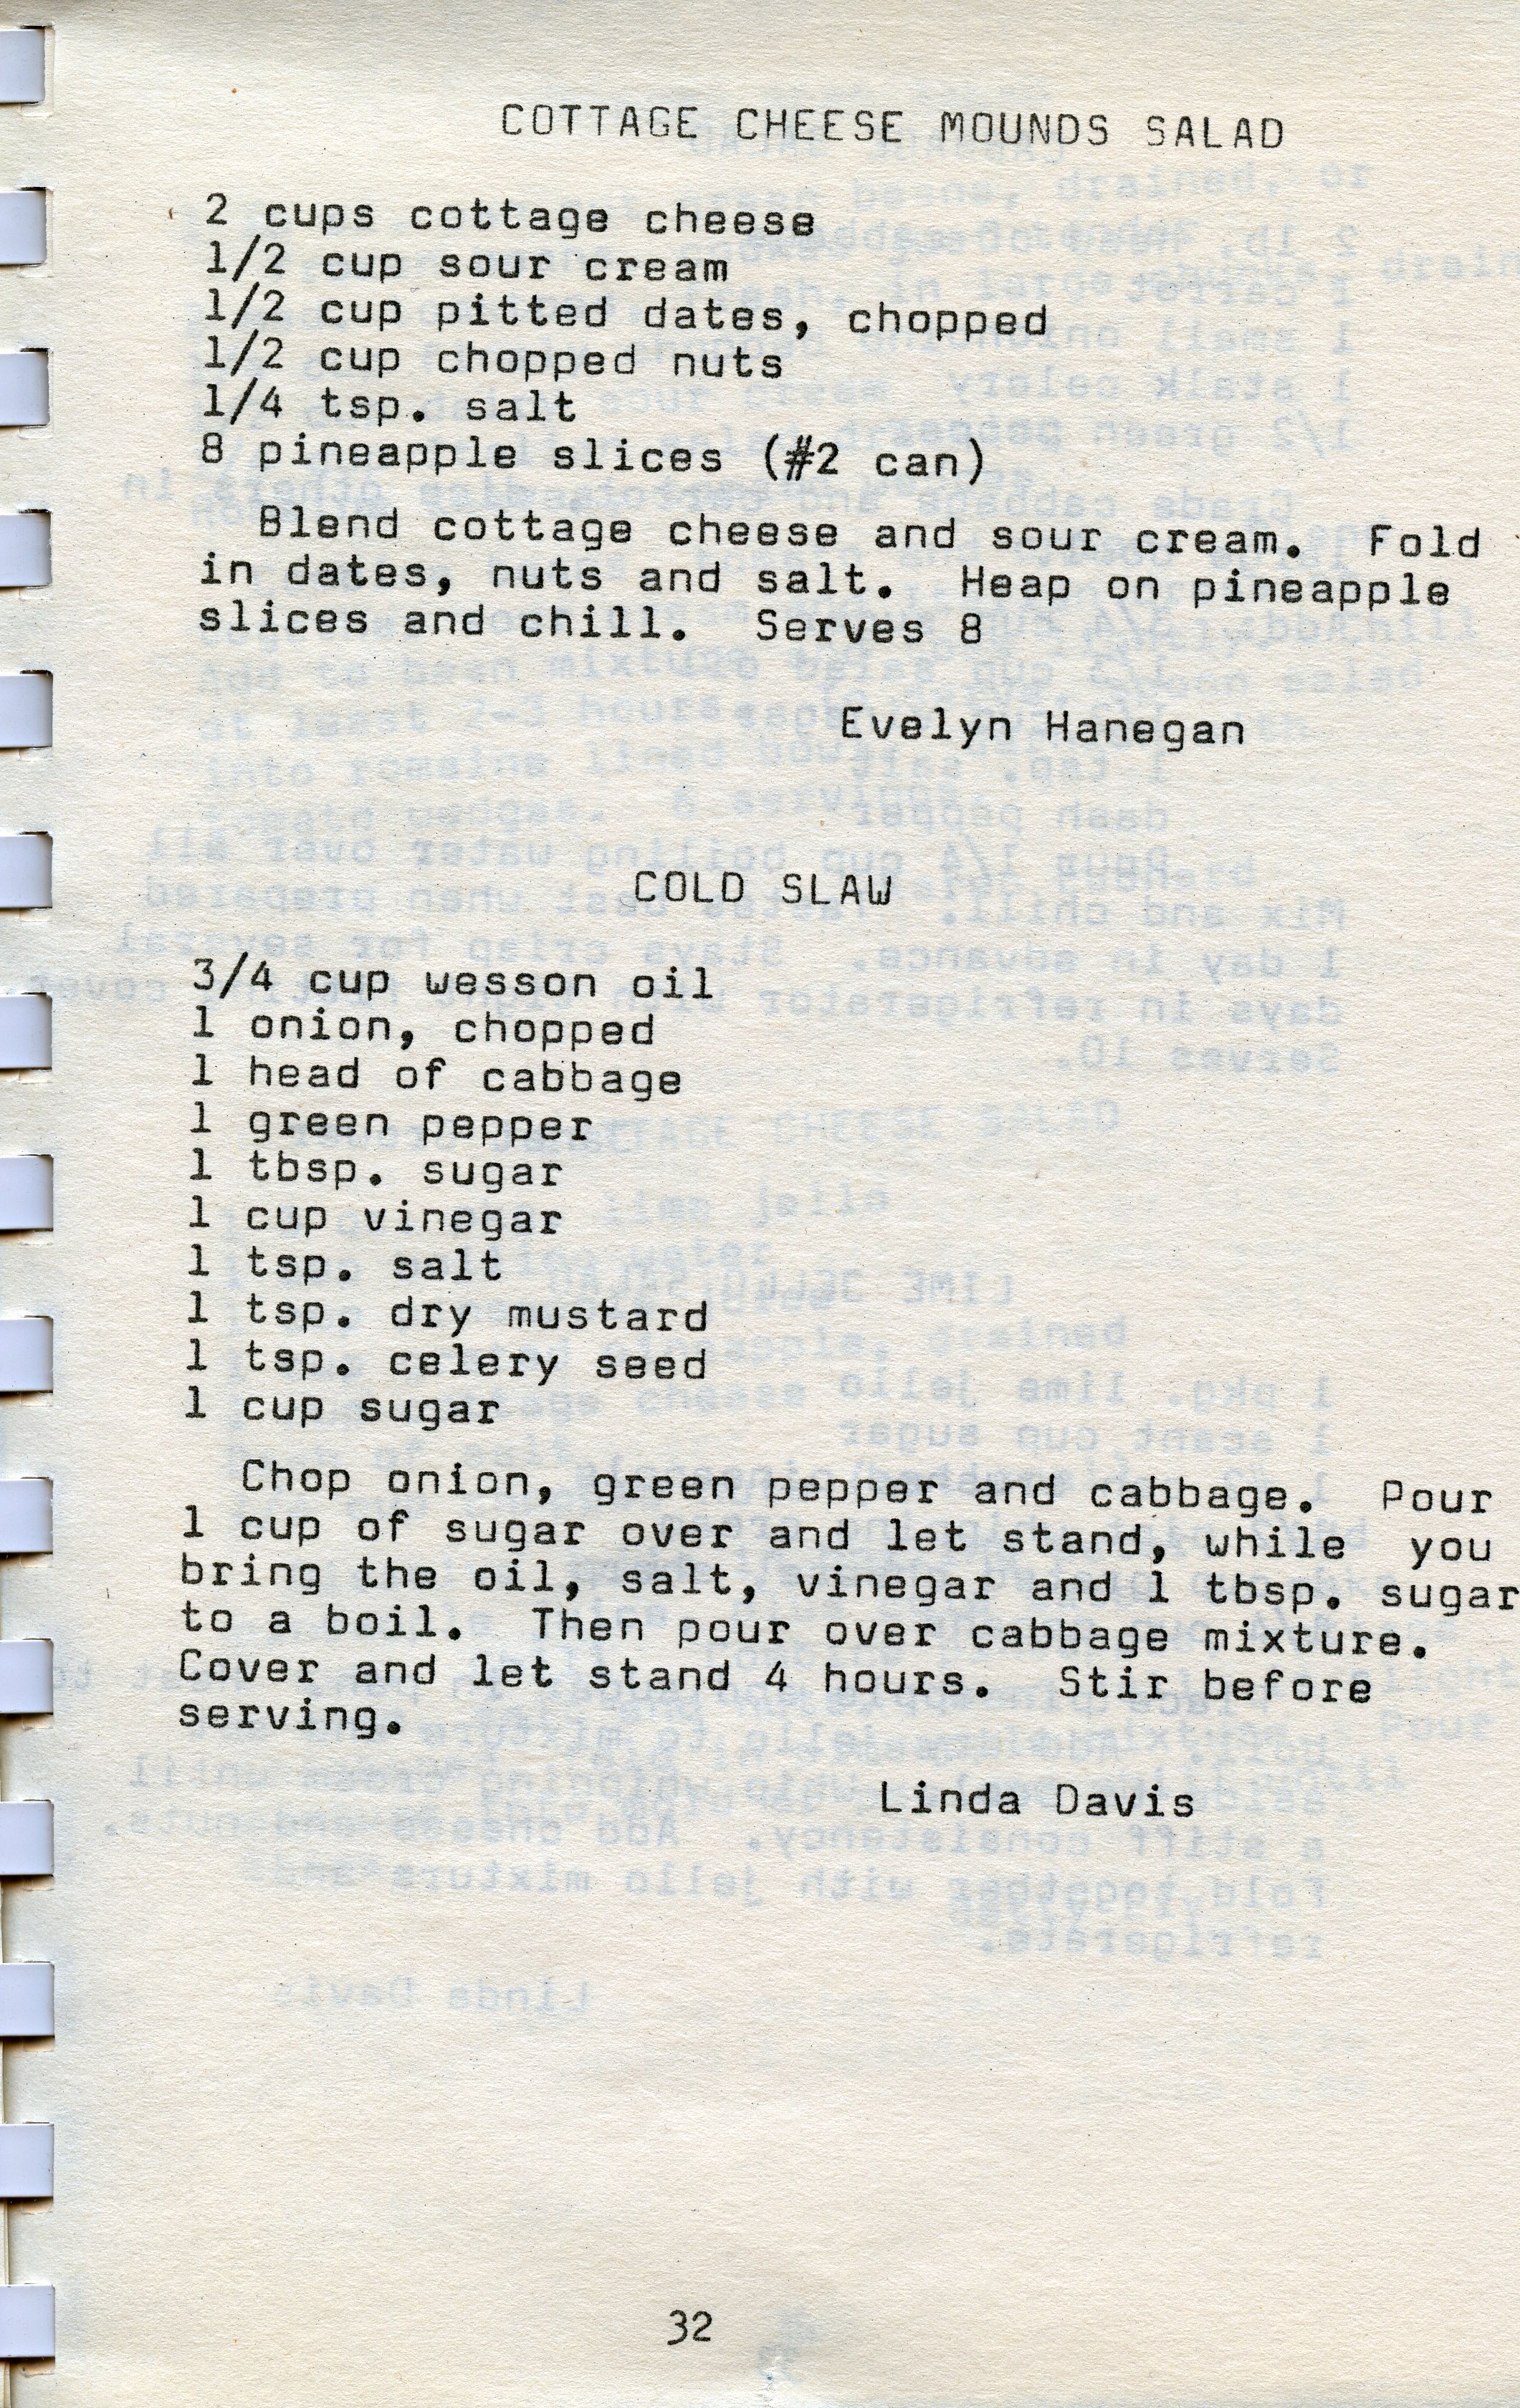 COTTAGE CHEESE MOUNDS SALAD
2 cups cottage cheese
1/2 cup sour cream
1/2 cup pitted dates, chopped
1/2 cup chopped nuts
1/4 tsp. salt
8 pineapple slices (#2 can)
Blend cottage cheese and sour cream. Fold
in dates, nuts and salt. Heap on pineapple
slices and chill. Serves 8
Evelyn Hanegan
COLD SLAW
3/4 cup wesson oil
1 onion, chopped
1 head of cabbage
1 green pepper
1 tbsp. sugar
1 cup vinegar
1 tsp. salt
1 tsp. dry mustard
1 tsp. celery seed
1 cup sugar
Chop onion, green pepper and cabbage. Pour
1 cup of sugar over and let stand, while you
bring the oil, salt, vinegar and 1 tbsp. sugar
to a boil. Then pour over cabbage mixture.
Cover and let stand 4 hours. Stir before
serving.
Linda Davis
32